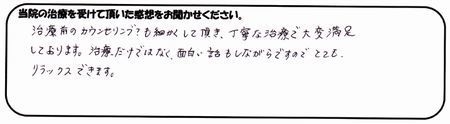 当院の治療を受けて頂いた感想をお聞かせください。
治療前のカウンセリングも細かくして頂き、丁寧な治療で大変満足
しております。治療だけではなく、面白い話もしながらですので とても
リラックスできます。